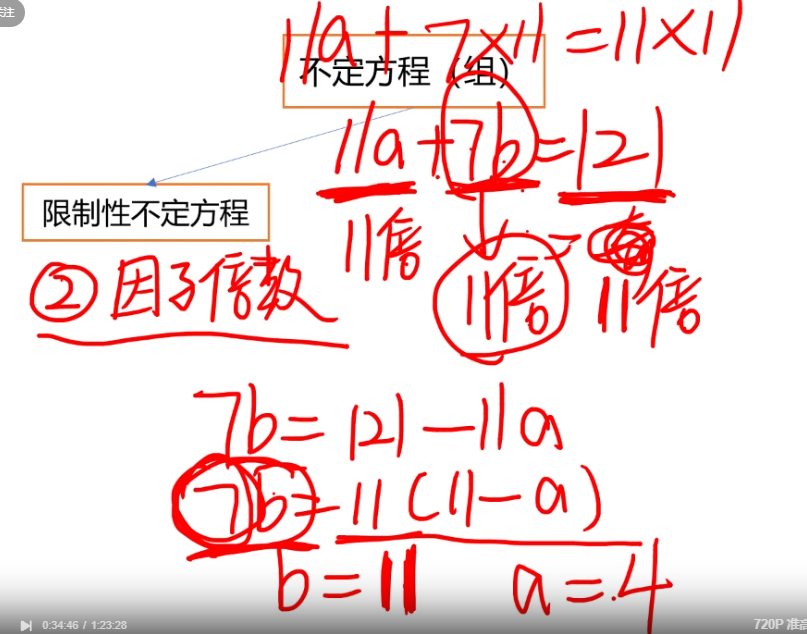 关注
11a+7×11=11×11
不定方程（组）
11a+7b=121
限制性不定方程
11倍 11倍 = 11倍
②因子倍数
7b=121-11a
7b=11(11-a)
b=11 a=4
0:34:46 / 1:23:28
720P 准高